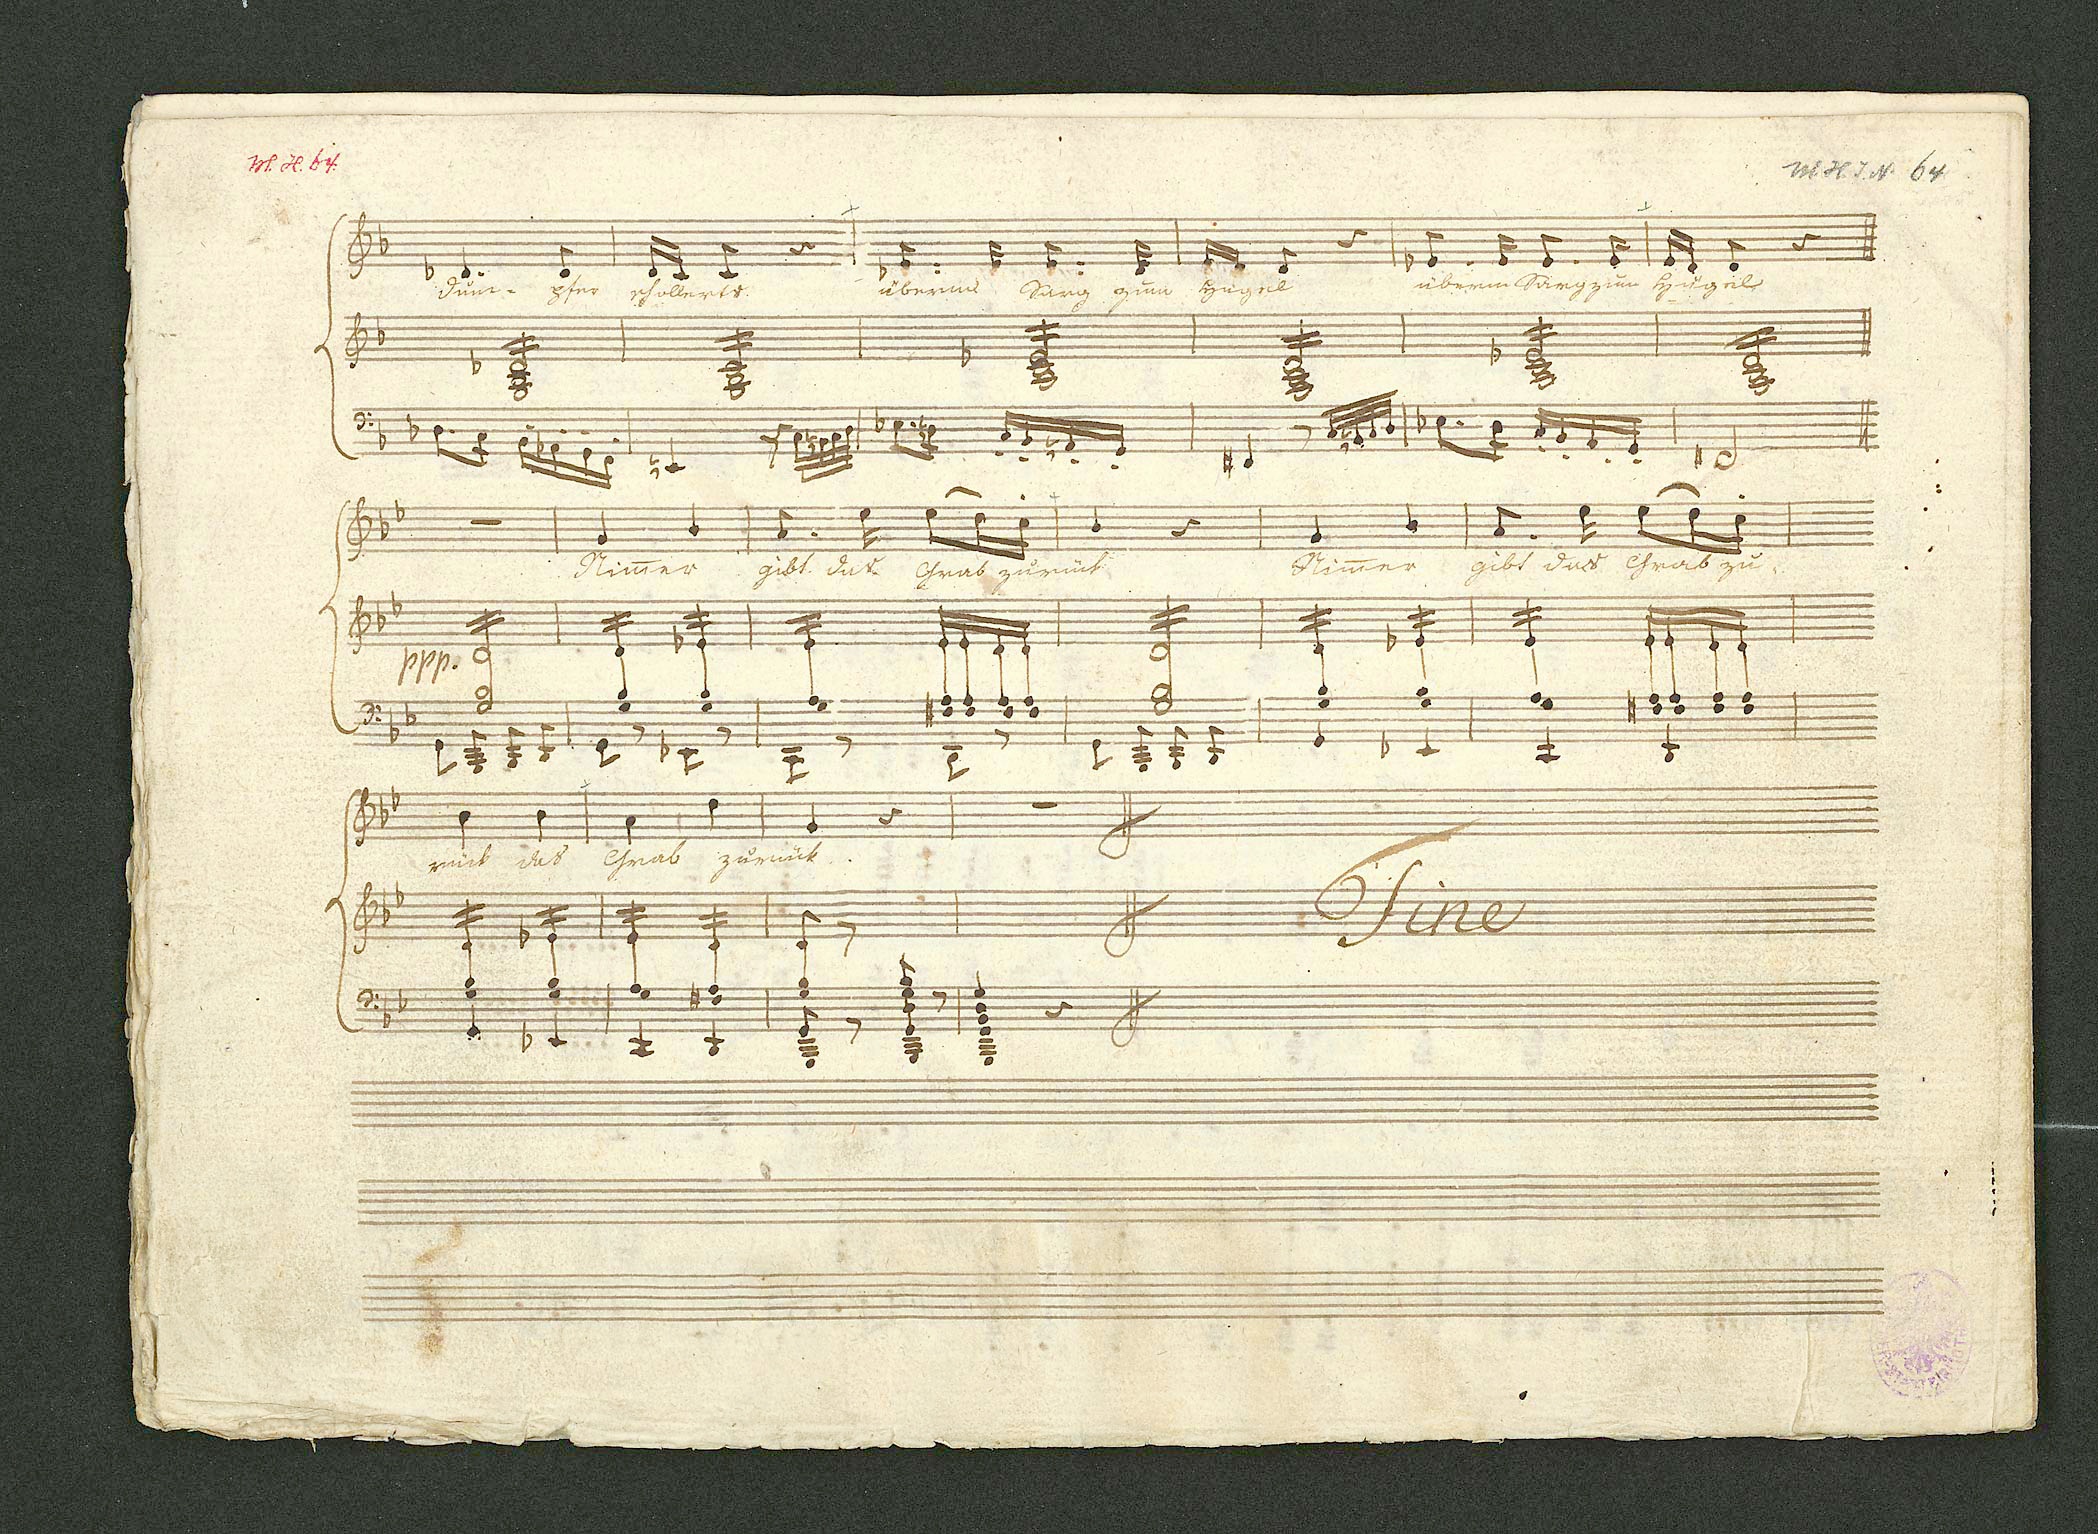 M. H. 64.
M H I. N. 64
Dum- pfer schollerts überm Sarg zum Hügel überm Sarg zum Hügel
Nim̄er gibt das Grab zurück Nim̄er gibt das Grab zu-
ppp.
rück das Grab zurück.
Fine